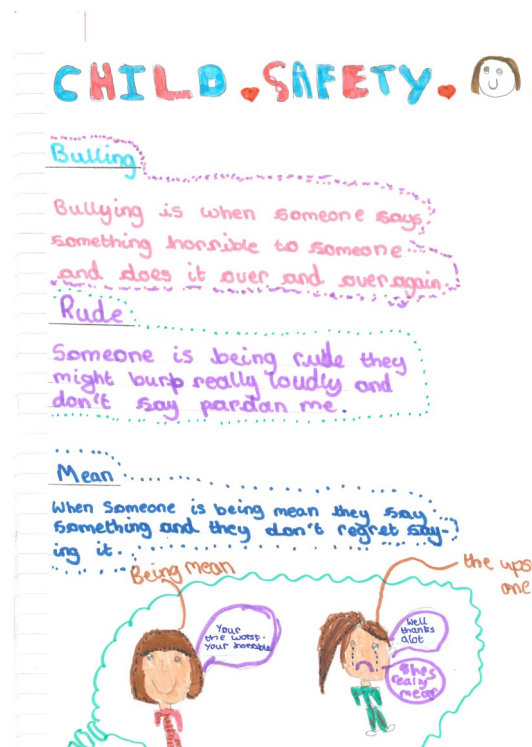 CHILD. SAFETY.
Bulling
Bullying is when someone says
something horrible to someone
and does it over and over again.
Rude
Someone is being rude they
might burp really loudly and
don't say pardan me.
Mean
When Someone is being mean they say
something and they don't regret say-
ing it.
Being mean
the ups
one
Your
the worst.
Your horrible
Well
thanks
alot
Shes
really
mean